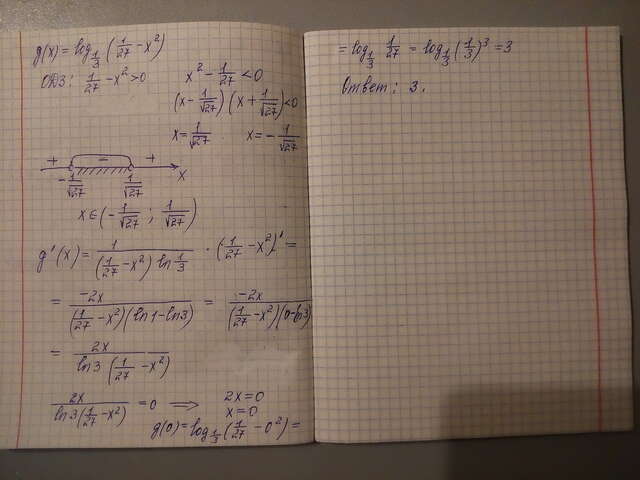 g(x) = log_{1/3} (1/27 - x²)
ОДЗ: 1/27 - x² > 0
x² - 1/27 < 0
(x - 1/√27) (x + 1/√27) < 0
x = 1/√27 x = - 1/√27
+ - +
- 1/√27 1/√27 x
x ∈ (- 1/√27 ; 1/√27)
g'(x) = 1/((1/27 - x²) ln 1/3) · (1/27 - x²)' =
= -2x/((1/27 - x²)(ln1 - ln3)) = -2x/((1/27 - x²)(0 - ln3))
= 2x/(ln3 (1/27 - x²))
2x/(ln3 (1/27 - x²)) = 0 ⟹ 2x = 0
x = 0
g(0) = log_{1/3} (1/27 - 0²) =
= log_{1/3} 1/27 = log_{1/3} (1/3)³ = 3
Ответ: 3.